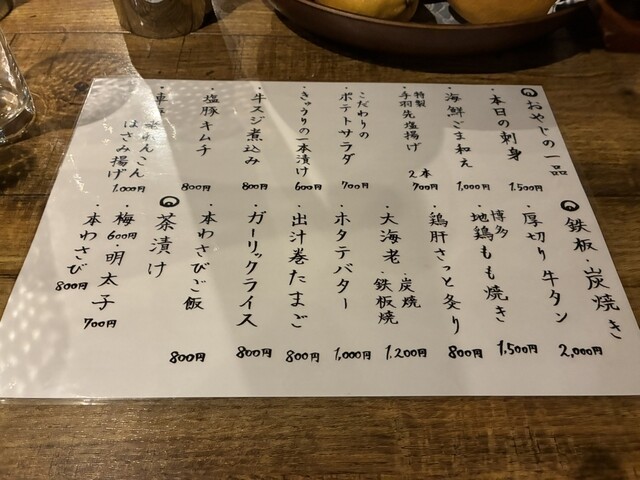 おやじの一品
・本日の刺身 1.500円
・海鮮ごま和え 1,000円
・特製
手羽先塩揚げ 2本 700円
・こだわりの
ポテトサラダ 700円
・きゅうりの一本漬け 600円
・牛スジ煮込み 800円
・塩豚キムチ 800円
れんこん
はさみ揚げ 1.000円
鉄板・炭焼き
・厚切り牛タン 2,000円
・博多
地鶏もも焼き 1,500円
・鶏肝さっと炙り 800円
・大海老・炭焼
・鉄板焼 1.200円
・ホタテバター 1,000円
・出汁巻たまご 800円
・ガーリックライス 800円
・本わさびご飯 800円
茶漬け
・梅 600円・明太子 700円
・本わさび 800円